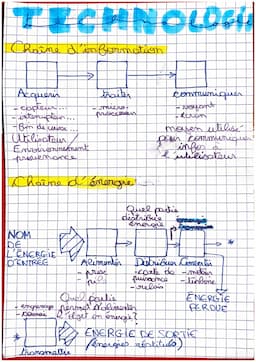 TECHNOLOGIE
Chaîne d'information
Acquérir traiter communiquer
- capteur...
- micro-processeur
- voyant
- écran
- fin de course...
Utilisateur
Environnement
provenance
moyen utilisé
pour communiquer
infos à
l'utilisateur
Chaîne d'énergie
Quel partie
distribue
énergie
NOM
DE
L'ÉNERGIE
D'ENTRÉE
Alimenter Distribuer Convertir
- prise
- pile
- carte de puissance
- relais
- moteur
- turbine
ÉNERGIE
PERDUE
Quel partie
permet d'alimenter
l'objet en énergie?
- engrenage
ÉNERGIE DE SORTIE
(énergies restituées)
transmettre